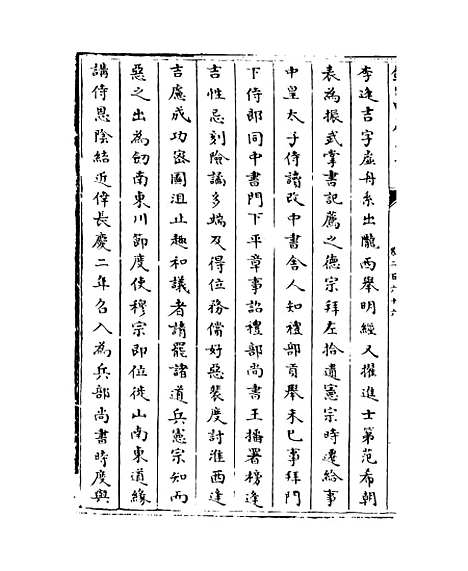 李逢吉字虛舟系出隴西舉明經又擢進士第范希朝
表為振武掌書記薦之德宗拜左拾遺憲宗時遷給事
中皇太子侍讀改中書舍人知禮部貢舉未已事拜門
下侍郎同中書門下平章事詔禮部尚書王播署榜逢
吉性忌刻險譎多端及得位務償好惡裴度討淮西逢
吉慮成功密圖沮止趣和議者請罷諸道兵憲宗知而
惡之出為劒南東川節度使穆宗即位徙山南東道緣
講侍恩陰結近倖長慶二年名入為兵部尚書時度與
卷二百六十六